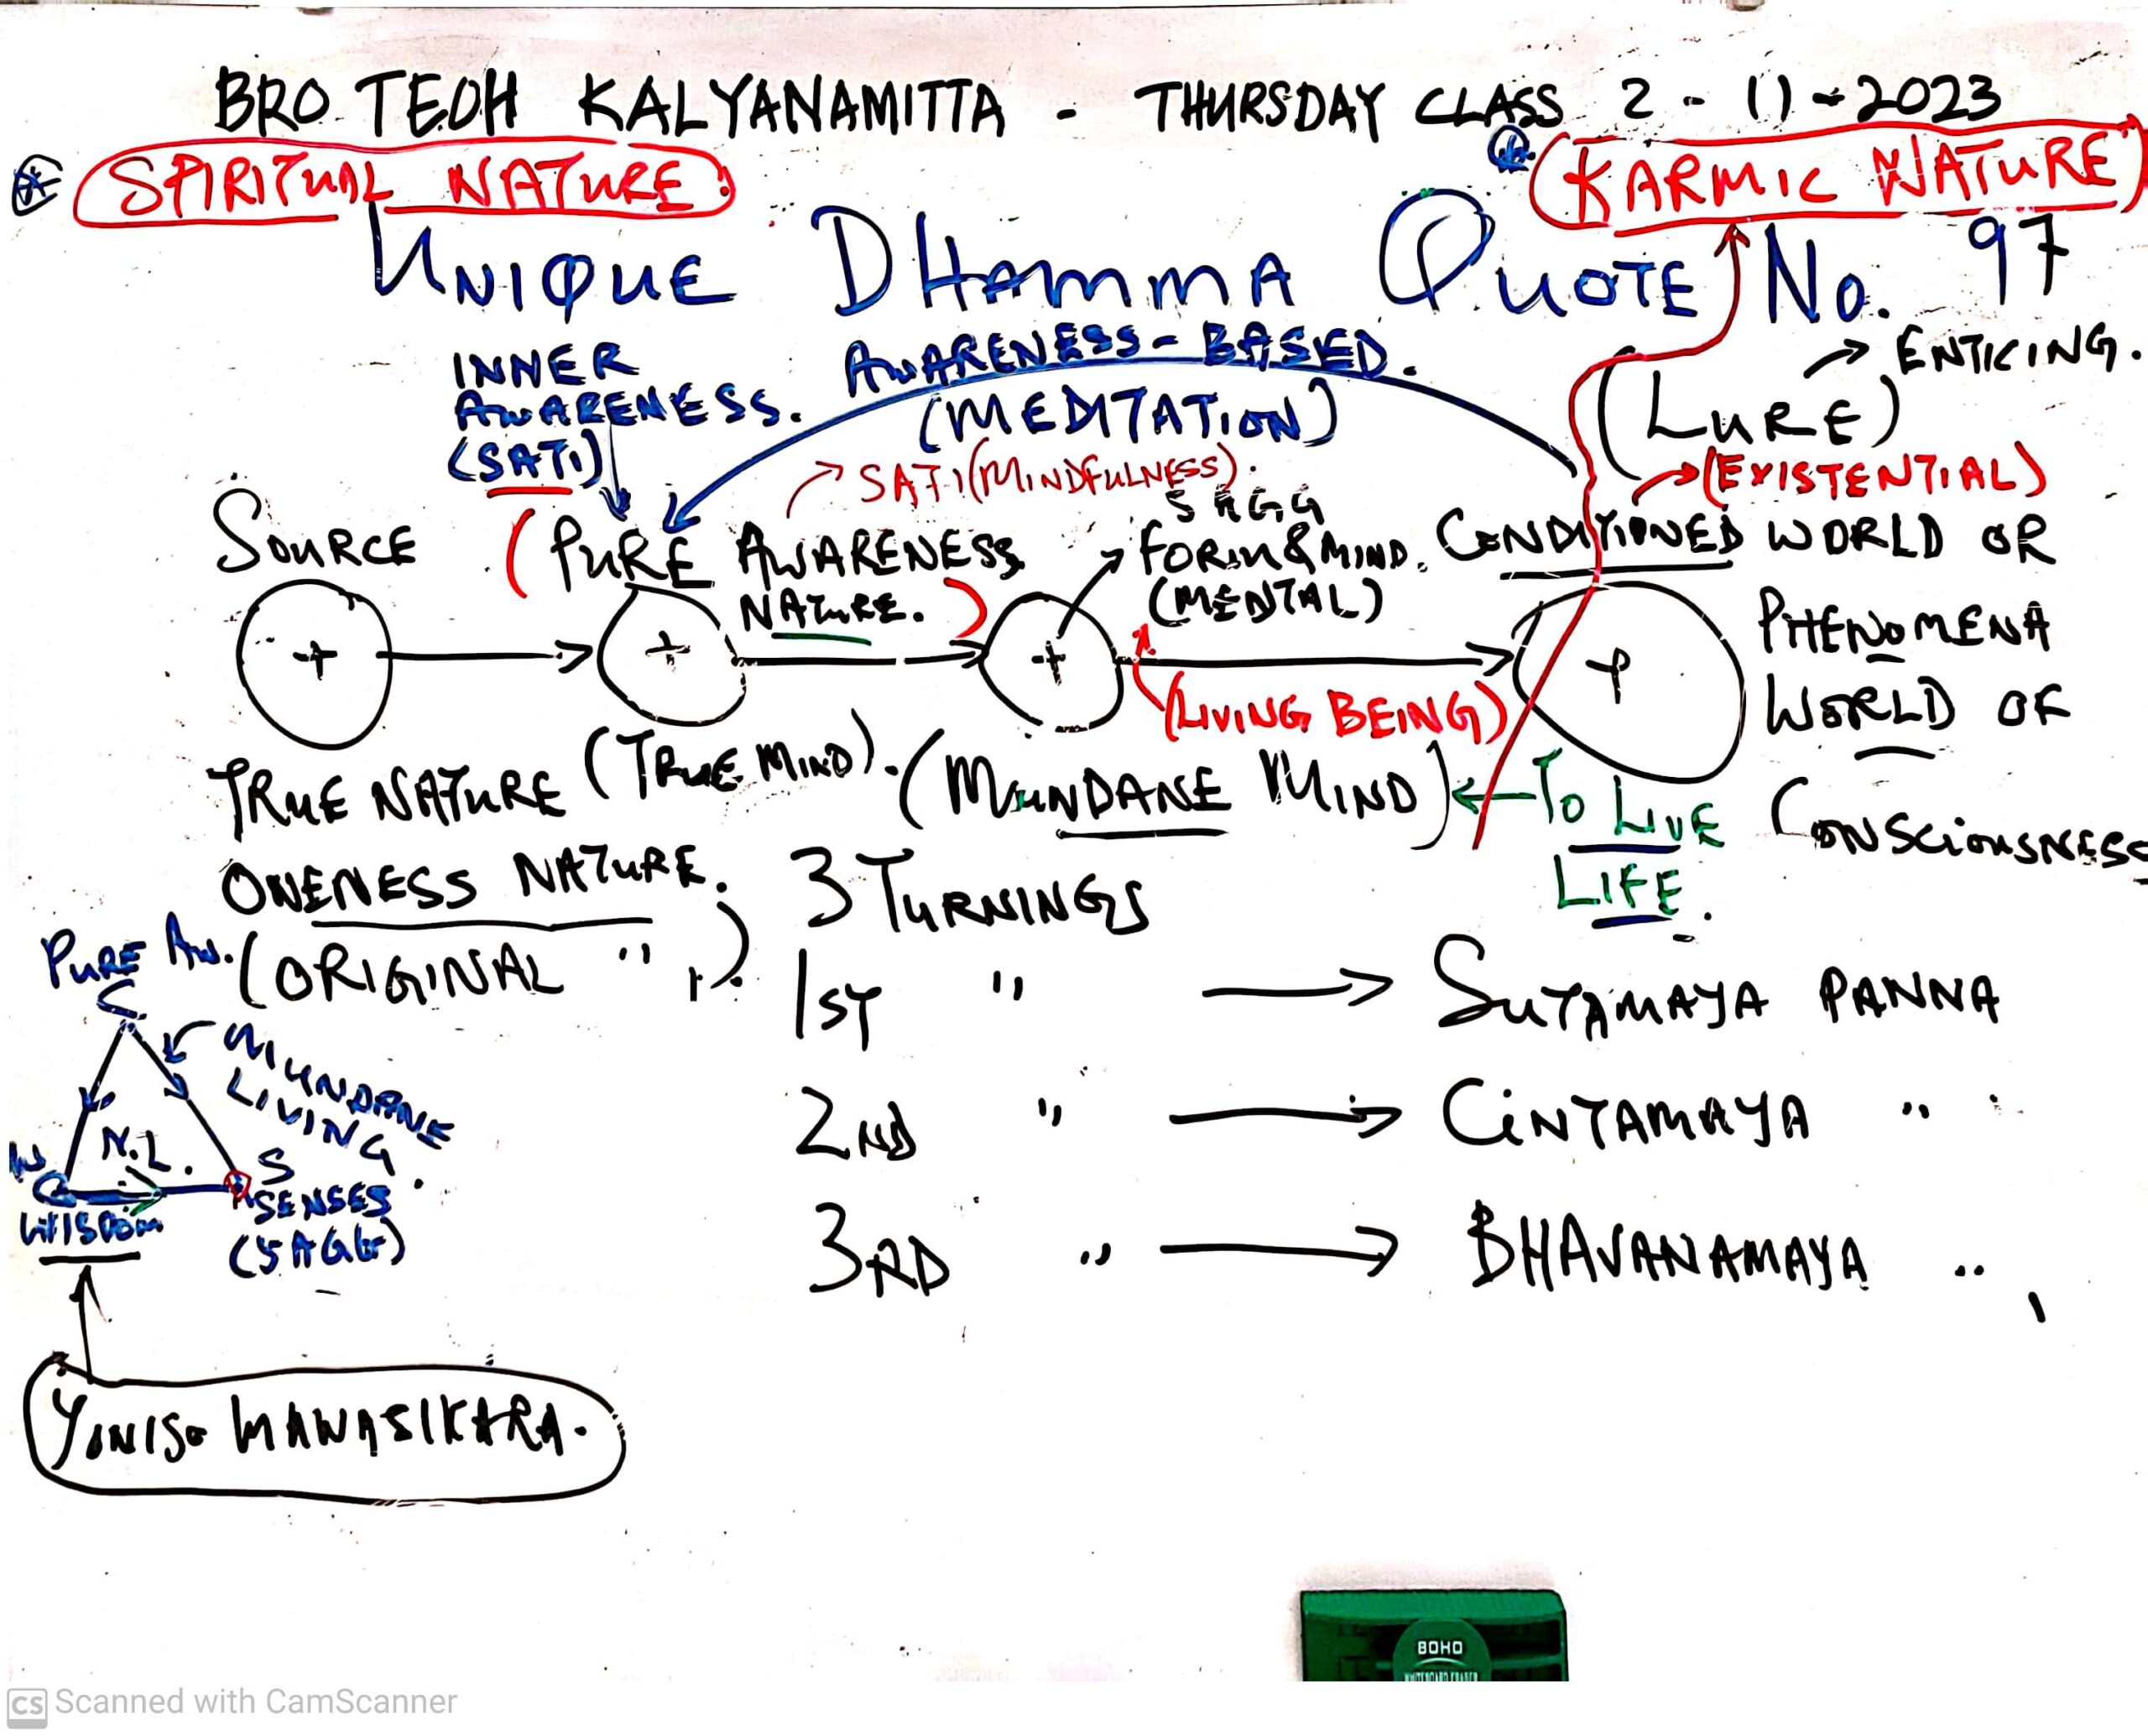 BRO. TEOH KALYANAMITTA - THURSDAY CLASS 2-11-2023
SPIRITUAL NATURE:
KARMIC NATURE
UNIQUE DHAMMA QUOTE No. 97
INNER
AWARENESS.
(SATI)
AWARENESS-BASED.
(MEDITATION)
SATI (MINDFULNESS).
(LURE)
ENTICING.
(EXISTENTIAL)
SOURCE
(PURE AWARENESS
NATURE.)
5 AGG
FORM & MIND.
(MENTAL)
CONDITIONED WORLD OR
PHENOMENA
WORLD OF
CONSCIOUSNESS
(LIVING BEING)
TRUE NATURE
(TRUE MIND).
(MUNDANE MIND)
TO LIVE
LIFE.
ONENESS NATURE.
(ORIGINAL " ").
3 TURNINGS
1ST " → SUTAMAYA PANNA
2ND " → CINTAMAYA "
3RD " → BHAVANAMAYA "
PURE AW.
MUNDANE
LIVING
N.L.
W
S
WISDOM
SENSES
(5 AGG)
YONISO MANASIKARA.
BOHO
WHITEBOARD ERASER
CS Scanned with CamScanner